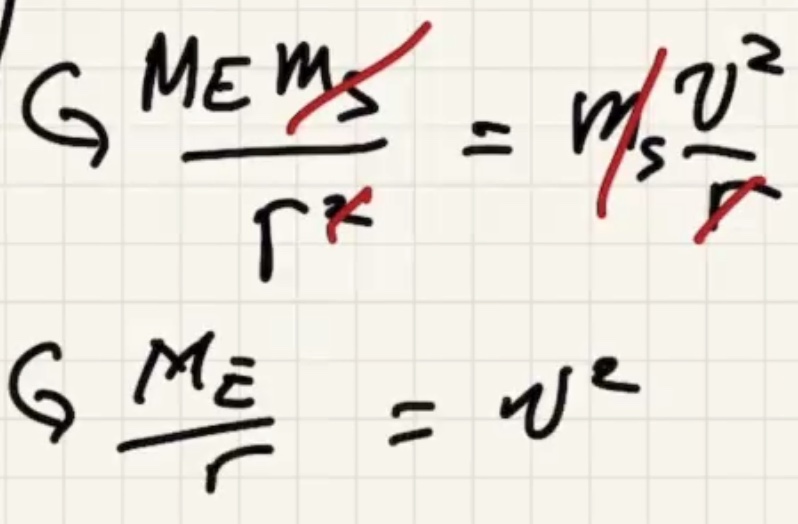 G M_E m_s / r² = m_s v² / r
G M_E / r = v²